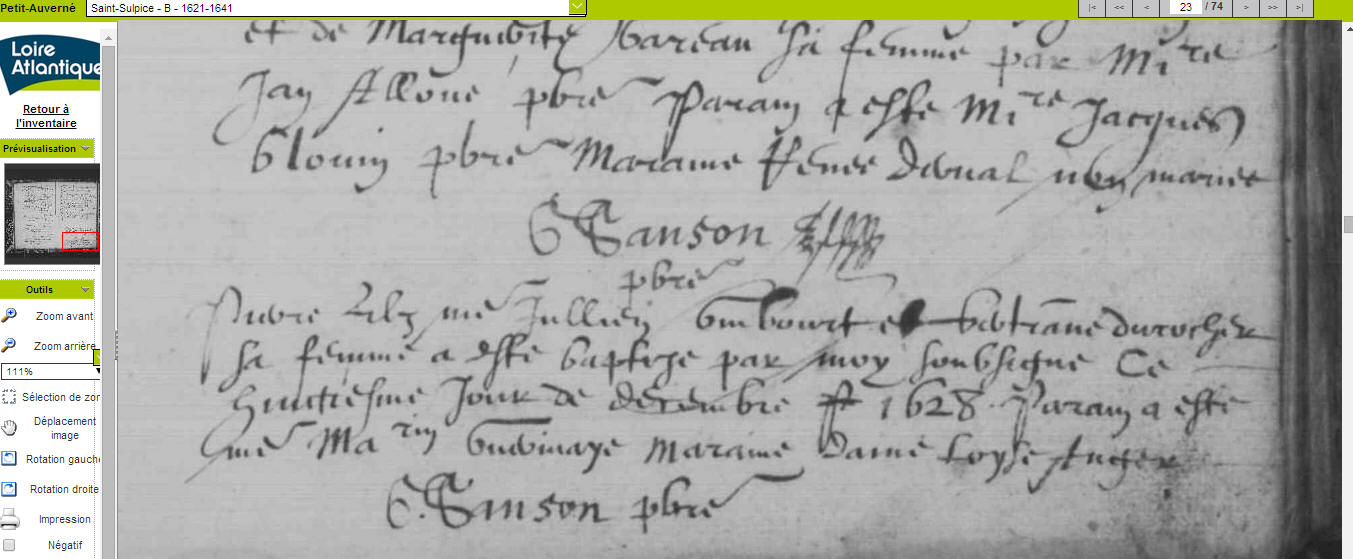 Petit-Auverné
Saint-Sulpice - B - 1621-1641
|<
<<
<
23 / 74
>
>>
>|
Loire
Atlantique
Retour à
l'inventaire
Prévisualisation
Outils
Zoom avant
Zoom arrière
111%
Sélection de zon
Déplacement
image
Rotation gauche
Rotation droite
Impression
Négatif
et de Marguerite bareau sa femme par Mire
Jan Alloue pbre Parain a este Mire Jacques
blouin pbre Maraine Renee non mariee
G Sanson
pbre
Pierre filz me Jullien et du rocher
sa femme a este baptize par moy soubsigne Ce
huictiesme Jour de decembre 1628 Parain a este
me Marin Maraine dame Loyse Auger
G. Sanson pbre